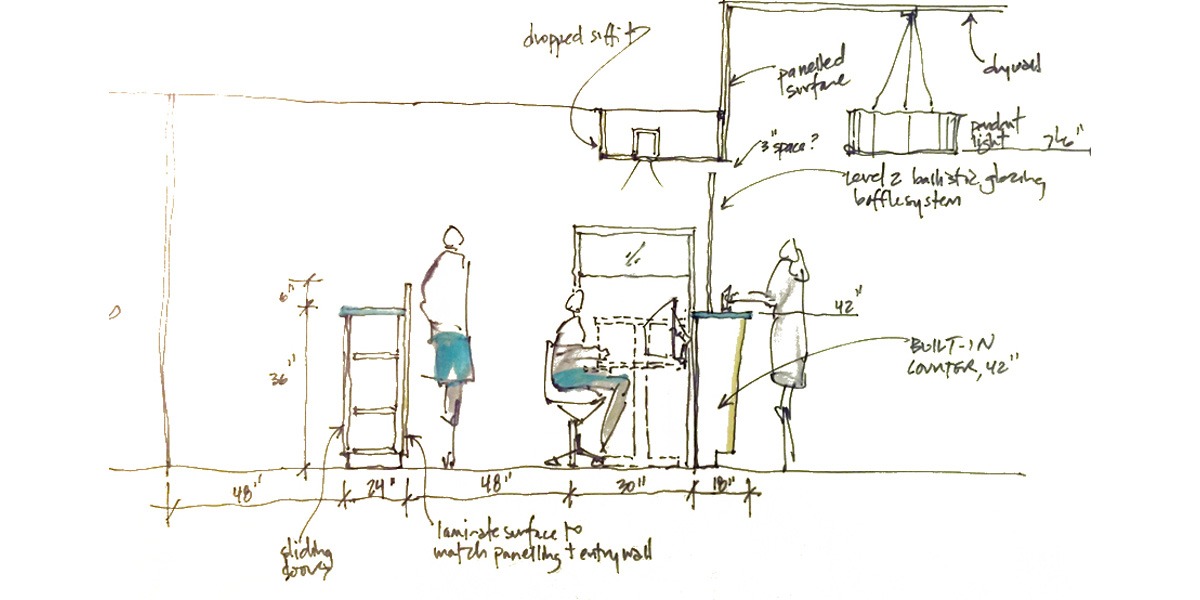 dropped soffit
panelled
surface
drywall
pendant
light
7'6"
3" space?
Level 2 ballistic glazing
baffle system
6"
36"
42"
BUILT-IN
COUNTER, 42"
48"
24"
48"
30"
18"
sliding
doors
laminate surface to
match panelling + entry wall